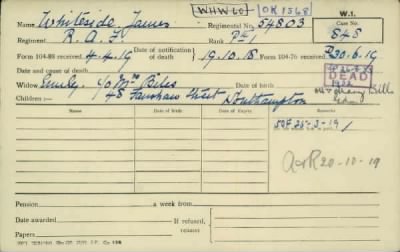 WHW 60 OK 1568
Name Whiteside James Regimental No. 54803 W.I.
Regiment R.A.F. Rank Pte 1 Case No. 848
Form 104-88 received 4.4.19 Date of notification of death 19.10.18 Form 104-76 received 30.6.19
Date and cause of death DEAD
Widow Emily c/o Mrs Biles Date of birth
Children:— 48 Fanshaw Street Southampton
Name Date of Birth Date of Expiry
SOF 25-3-19
A&R 20-10-19
Pension a week from
Date awarded If refused, reasons
Papers